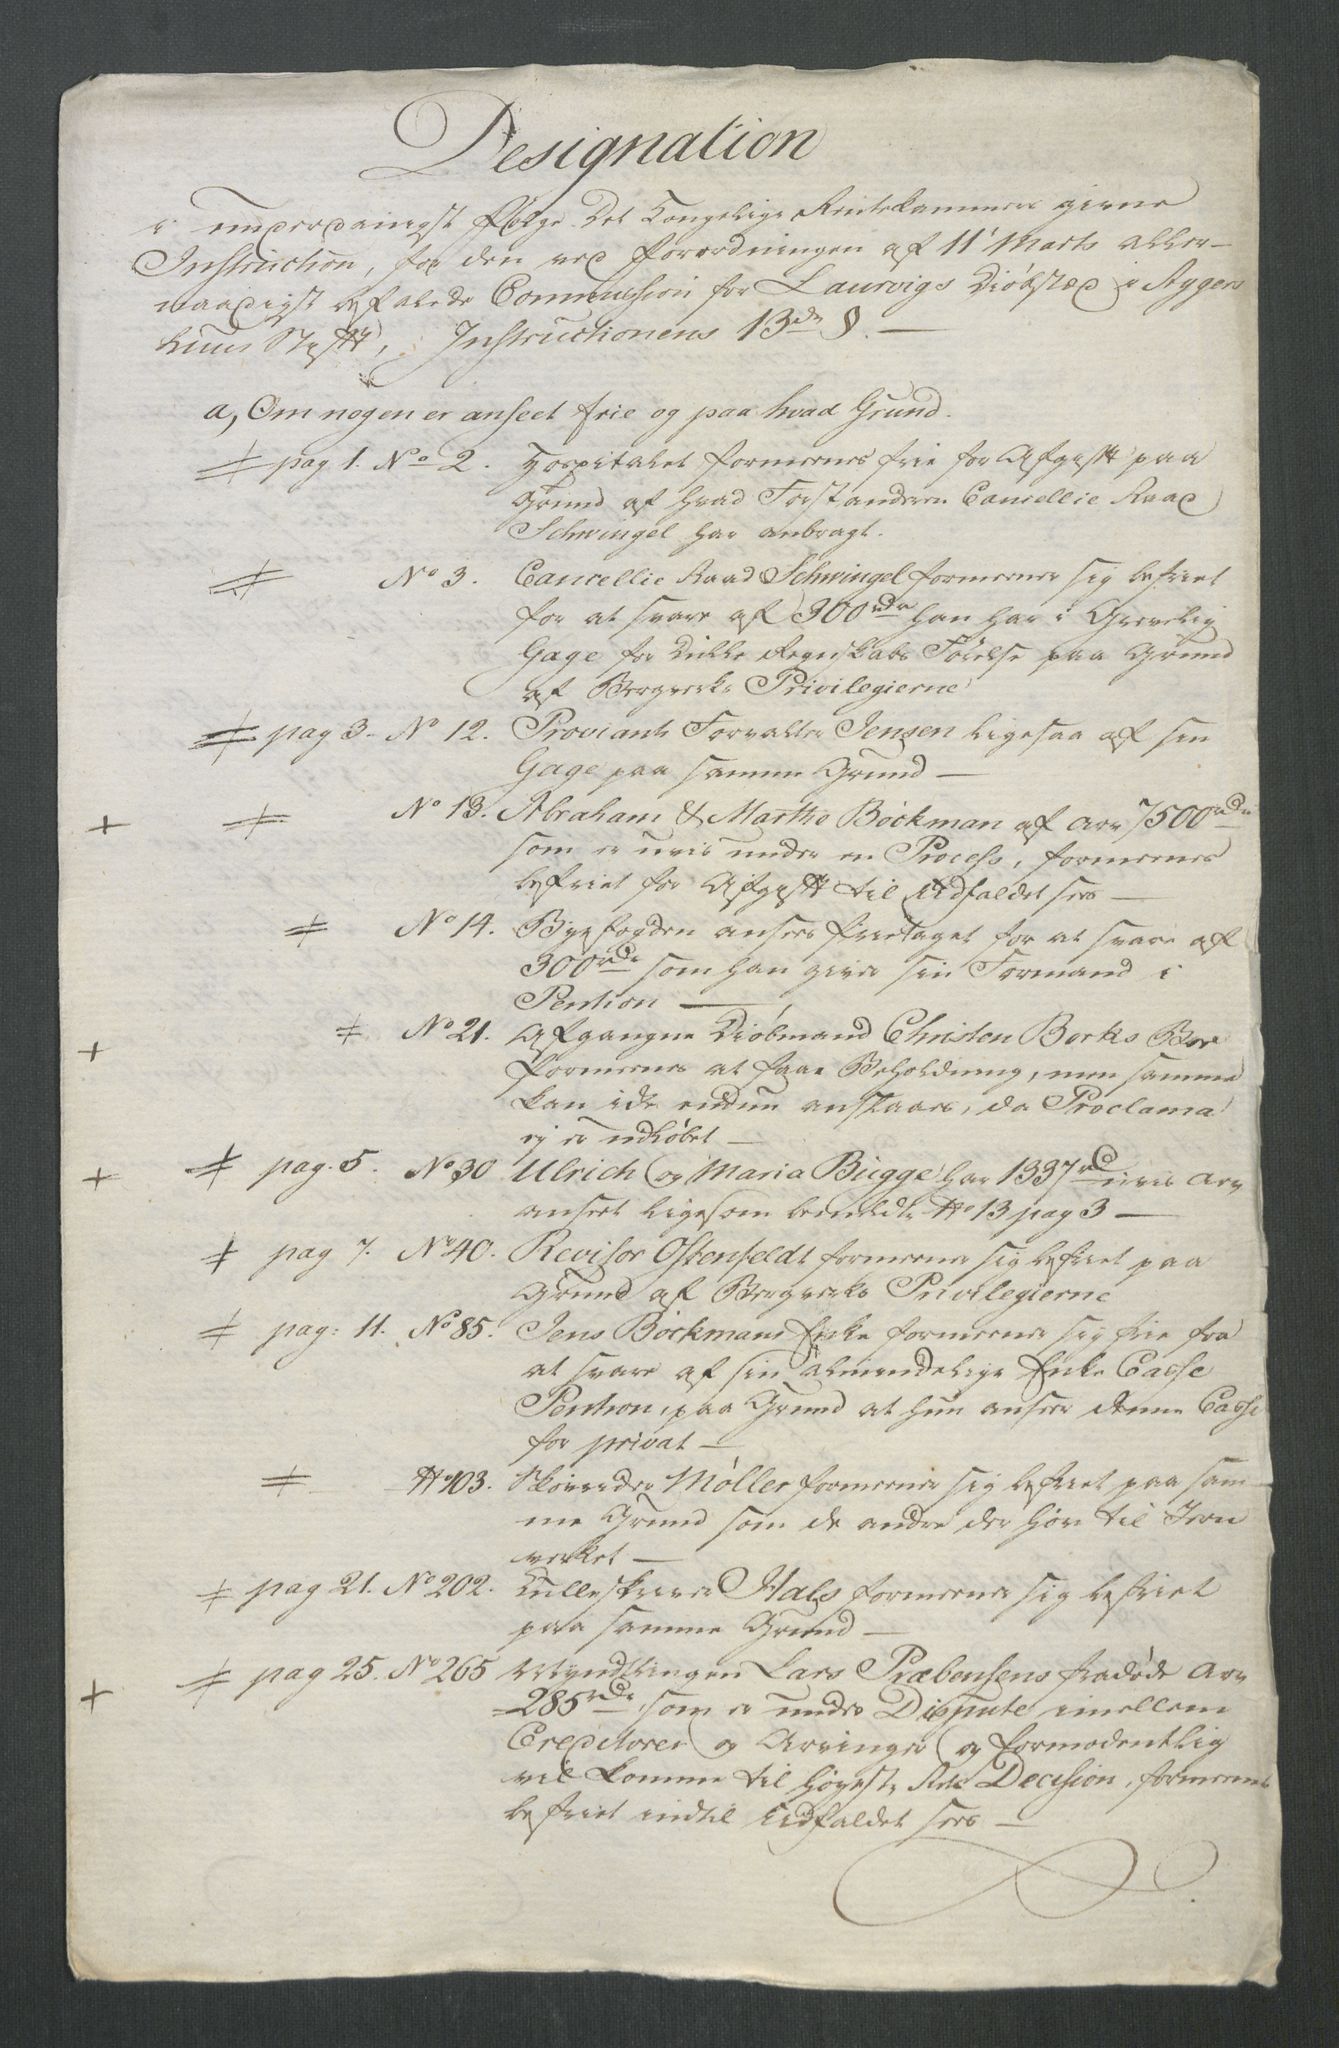 Designation
i underdanigst følge Det Kongelige Rentekammers givne
Instruction, for den ved Forordningen af 11' Marts aller-
naadigst befalede Commission for Laurvigs Kiøbstæd i Agger-
huus Stift, Instructionens 13de §. —
a, Om nogen er anseet frie og paa hvad Grund.
pag 1. No 2. Hospitalet formeenes frie for Afgift paa
Grund af hvad Forstanderen Cancellie Raad
Schwingel har anbragt.
No 3. Cancellie Raad Schwingel formeener sig befriet
for at svare af 300rdr han har i Grevelig
Gage for Regnskabs Førelse paa Grund
af Bergverks Privilegierne
pag 3. No 12. Proviant Forvalter Jensen ligesaa af sin
Gage paa samme Grund —
+ No 13. Abraham & Marthe Böckman af Arv 7500rdr
som er uvis under en Process, formeenes
befriet for Afgift til Udfaldet sees —
No 14. Byefogden ansees frietaget for at svare af
300rdr som han giver sin Formand i
Pention —
+ No 21. Afgangne Kiøbmand Christen Borks Boe
formeenes at faae Beholdning, men samme
kan ikke endnu anslaaes, da Proclama
ej er udløbet —
+ pag. 5. No 30 Ulrich og Maria Bugge har 1337rd uvis Arv
anseet ligesom bemeldte No 13 pag 3 —
pag 7. No 40. Revisor Ostenfeldt formeener sig befriet paa
Grund af Bergverks Privilegierne
pag: 11. No 85. Jens Böckmans Enke formeener sig frie fra
at svare af sin almindelige Enke Casse
Pention, paa Grund at hun anseer denne Casse
for privat —
No 103. Skovrider Møller formeener sig befriet paa sam-
me Grund som de andre der hører til Jern
verket —
pag 21. No 202. Kullskriver Hals formeener sig befriet
paa samme Grund —
+ pag 25. No 265 Myndtlingen Lars Præbensens fradøde Arv
285rdr som er under Dispute imellem
Creditorer og Arvinger og formodentlig
vil komme til høyeste Rets Decision, formeenes
befriet indtil Udfaldet sees —